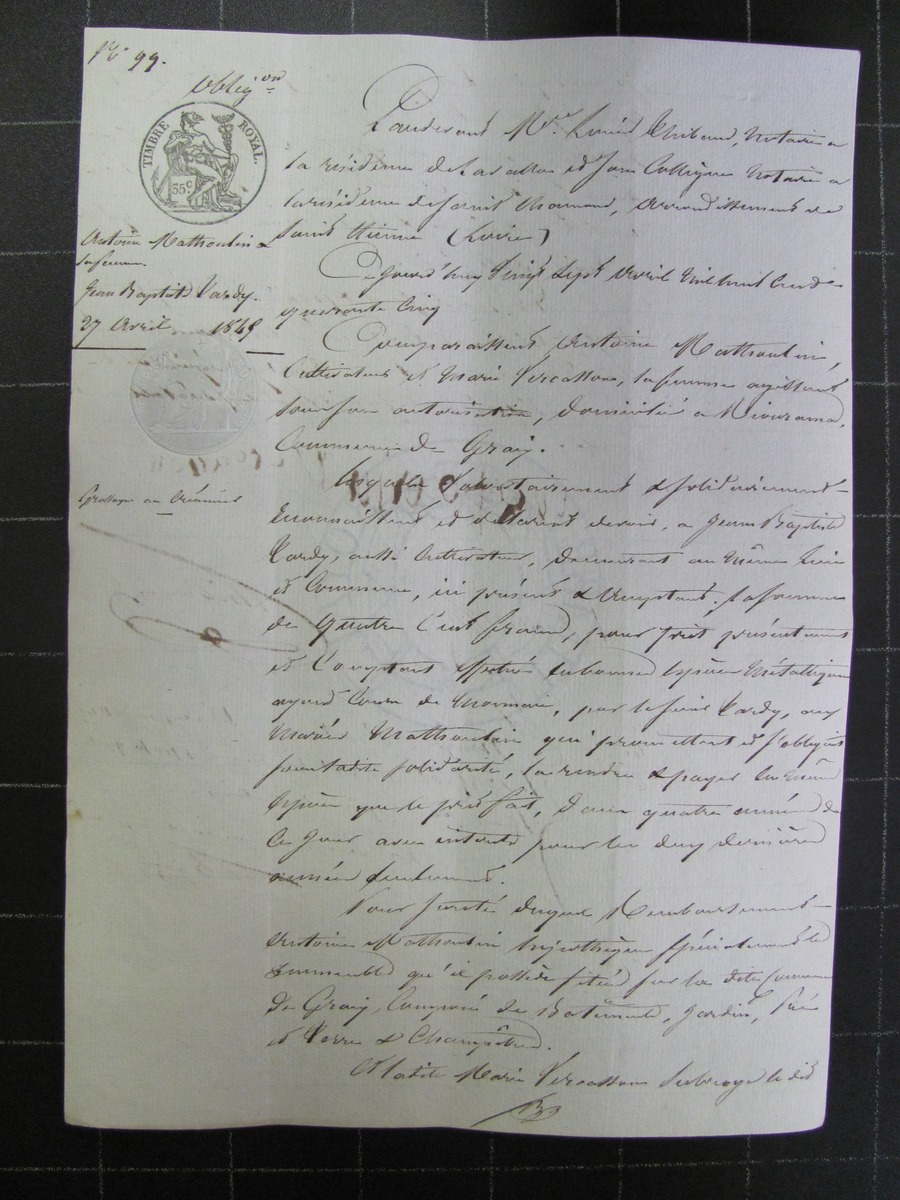 N° 99.
Oblig.on
TIMBRE ROYAL.
35c
Antoine Mathoulin &
sa femme
Jean Baptiste Tardy.
27 Avril 1845
Grosse au créancier
Pardevant Me Louis Thibaud, Notaire a
la résidence de Lavalla et son Collègue Notaire a
la résidence de Saint Chamond, arrondissement de
Saint Etienne (Loire)
Aujourd'huy Vingt Sept Avril Mil huit Cent
quarante Cinq
Comparaissent Antoine Mathoulin,
Cultivateur et Marie, sa femme agissant
sous son autorisation, domiciliés a
Commune de Graix.
Lesquels Solidairement
reconnaissent et déclarent devoir, a Jean Baptiste
Tardy, aussi Cultivateur, demeurant au même lieu
et Commune, ici présent & acceptant, la somme
de Quatre Cent francs, pour prêt présentement
et Comptant effectué en bonnes espèces Métalliques
ayant Cours de Monnaie, par le sieur Tardy, aux
Mariés Mathoulin qui promettent et s'obligent
sous ladite solidarité, la rendre & payer en même
espèces que le prêt fait, dans quatre années de
ce jour avec intérêts pour les deux dernières
années seulement.
Pour sûreté duquel Remboursement
Antoine Mathoulin hypothèque spécialement les
immeubles qu'il possède situés sur la dite Commune
de Graix, Composés de Bâtiments, Jardins, Prés
et Terres & Champêtres.
Et ladite Marie subroge le dit